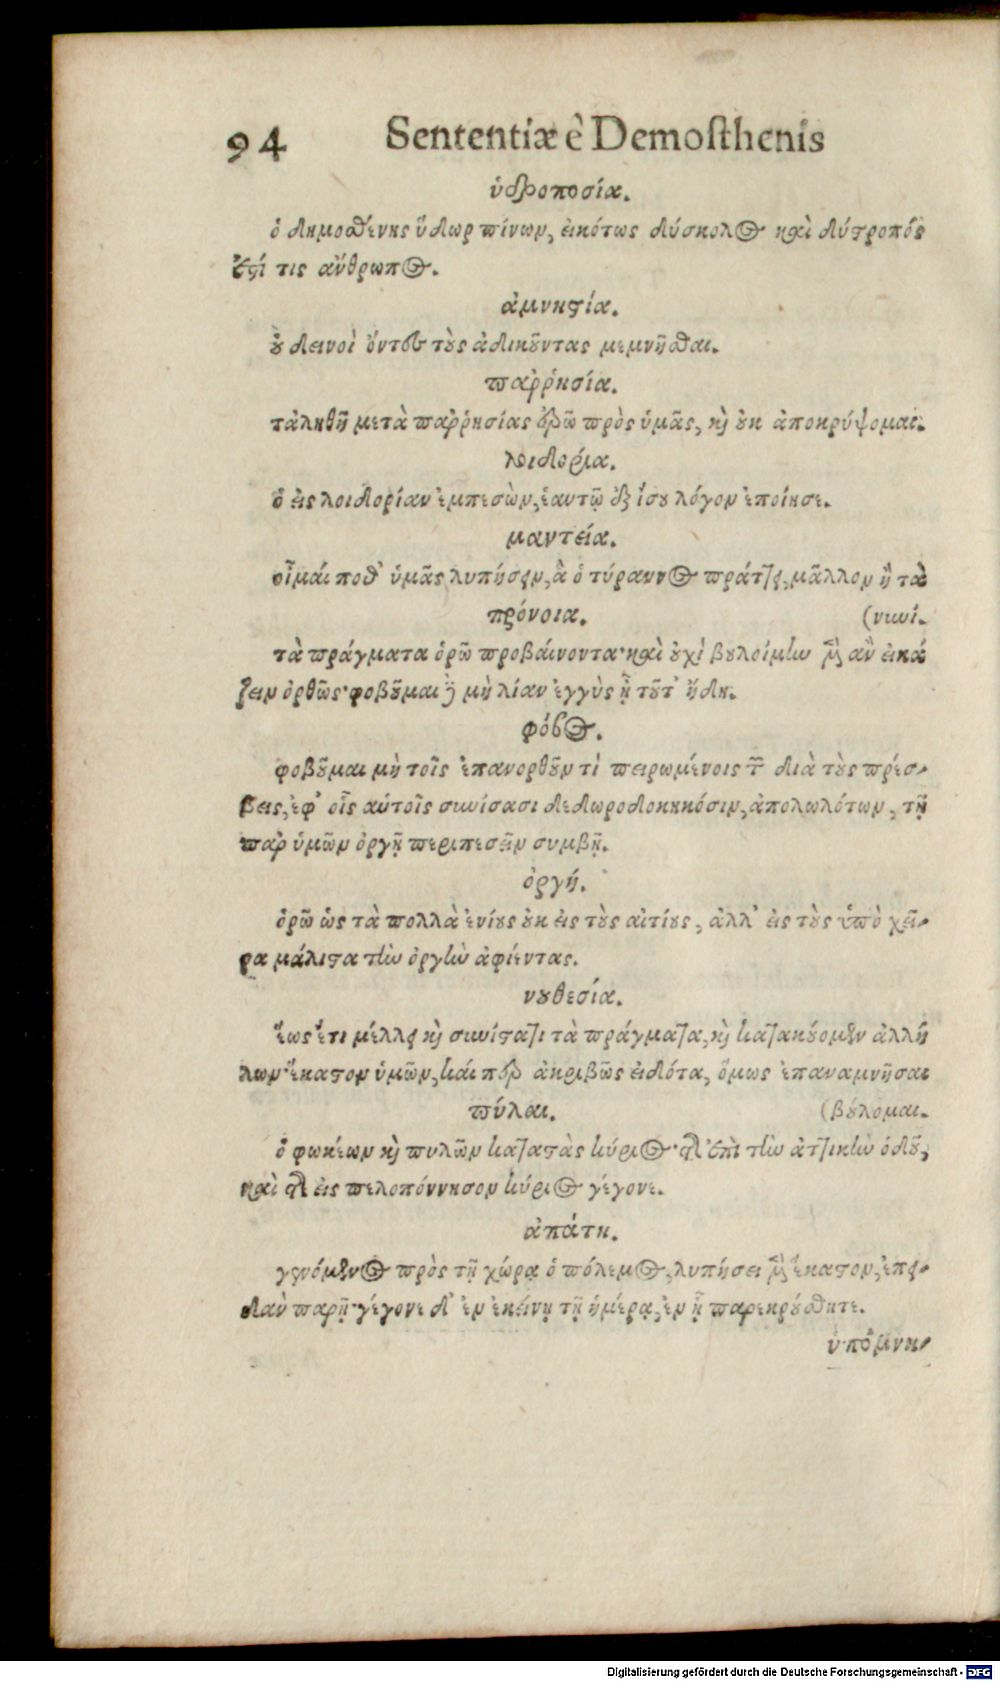 94 Sententiæ è Demosthenis
ὑδροποσία.
ὁ δημοσθένης ὕδωρ πίνων, εἰκότως δύσκολος καὶ δύστροπός
ἐστί τις ἄνθρωπος.
ἀμνηστία.
οὐ δεινοὶ ὄντες τοὺς ἀδικοῦντας μεμνῆσθαι.
παρρησία.
τἀληθῆ μετὰ παρρησίας ἐρῶ πρὸς ὑμᾶς, καὶ οὐκ ἀποκρύψομαι.
λοιδορία.
ὁ εἰς λοιδορίαν ἐμπεσὼν, ἑαυτῷ ἐξ ἴσου λόγον ἐποίησε.
μαντεία.
οἶμαί ποθ' ὑμᾶς λυπήσειν, ἃ ὁ τύραννος πράττει, μᾶλλον ἢ τὰ
πρόνοια. (νυνί.
τὰ πράγματα ὁρῶ προβαίνοντα· καὶ οὐχὶ βουλοίμην μὲν ἂν εἰκά
ζειν ὀρθῶς· φοβοῦμαι δὲ μὴ λίαν ἐγγὺς ᾖ τοῦτ' ἤδη.
φόβος.
φοβοῦμαι μὴ τοῖς ἐπανορθοῦν τὶ πειρωμένοις τῶν διὰ τοὺς πρέσ-
βεις, ἐφ' οἷς αὑτοῖς συνίσασι δεδωροδοκηκόσιν, ἀπολωλότων, τῇ
παρ' ὑμῶν ὀργῇ περιπεσεῖν συμβῇ.
ὀργή.
ὁρῶ ὡς τὰ πολλὰ ἐνίους οὐκ εἰς τοὺς αἰτίους, ἀλλ' εἰς τοὺς ὑπὸ χεῖ-
ρα μάλιστα τὴν ὀργὴν ἀφιέντας.
νουθεσία.
ἕως ἔτι μέλλει καὶ συνίσταται τὰ πράγματα, καὶ κατακούομεν ἀλλή
λων· ἕκαστον ὑμῶν, καί περ ἀκριβῶς εἰδότα, ὅμως ἐπαναμνῆσαι
πύλαι. (βούλομαι.
ὁ φωκέων καὶ πυλῶν καταστὰς κύριος· τῆς ἐπὶ τὴν ἀττικὴν ὁδοῦ,
καὶ τῆς εἰς πελοπόννησον κύριος γέγονε.
ἀπάτη.
γενόμενος πρὸς τῇ χώρᾳ ὁ πόλεμος, λυπήσει μὲν ἕκαστον, ἐπει-
δὰν παρῇ· γέγονε δ' ἐν ἐκείνῃ τῇ ἡμέρᾳ, ἐν ᾗ παρεκρούσθητε.
ὑπόμνη-
Digitalisierung gefördert durch die Deutsche Forschungsgemeinschaft - DFG